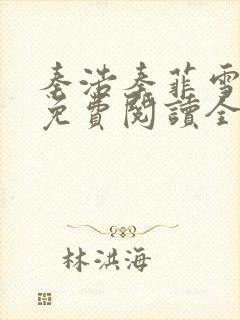 秦浩秦菲雪
免費閱讀全
林洪海